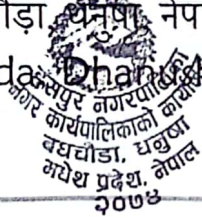 ौड़ा, धनुषा, नेप
da, Dhanu
नगरपालिका
नगर कार्यपालिकाको कार्या
बघचौडा, धनुषा
मधेश प्रदेश, नेपाल
२०७४